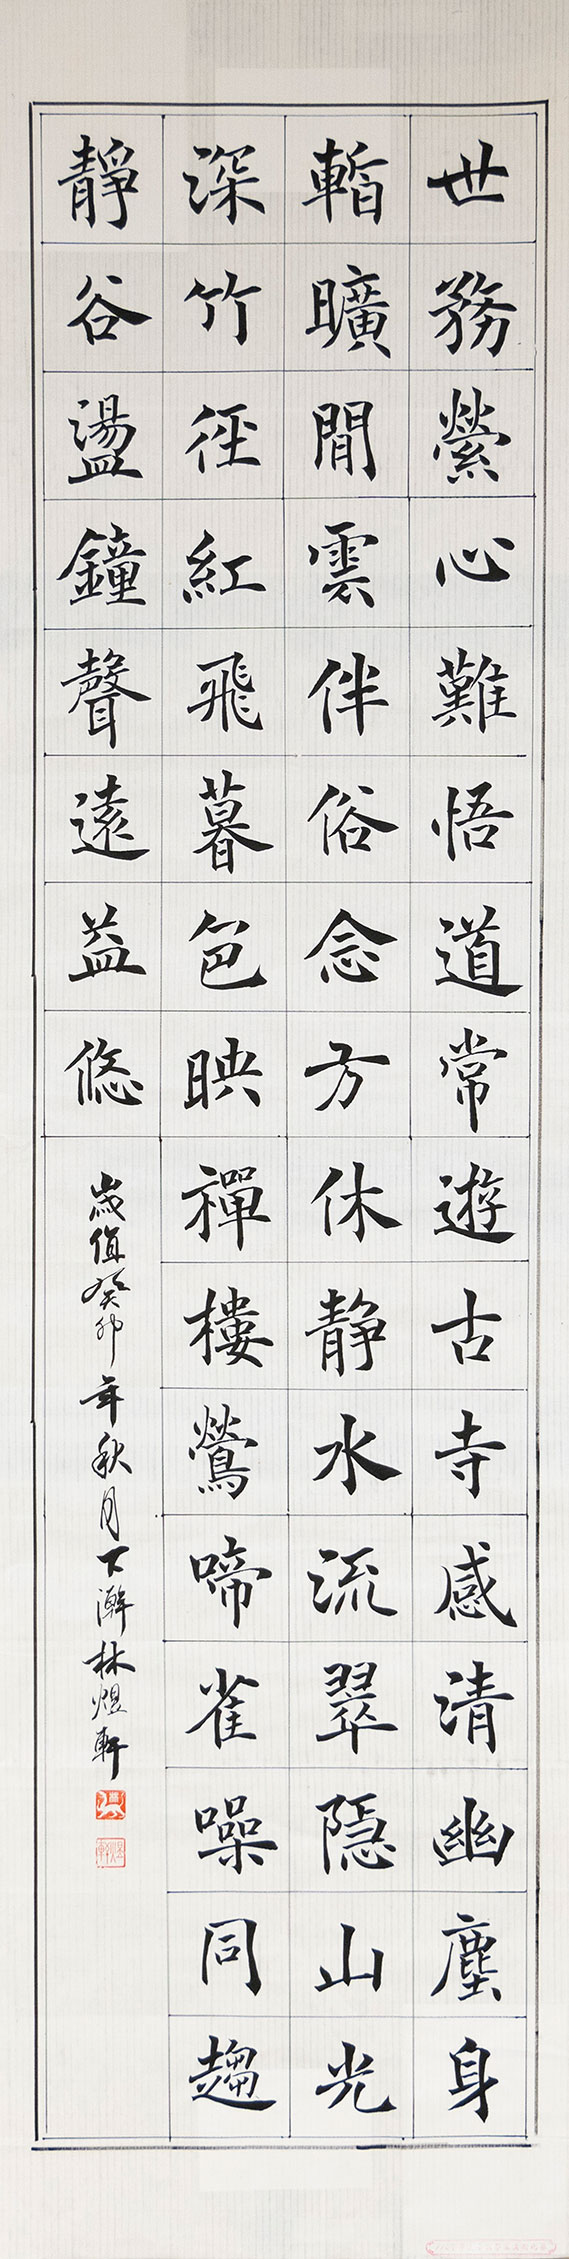 世務縈心難悟道常遊古寺感清幽塵身
暫曠閒雲伴俗念方休静水流翠隐山光
深竹径紅飛暮色映禪樓鶯啼雀噪同趨
靜谷盪鐘聲遠益悠
歲值癸卯年秋月下澣林煜軒